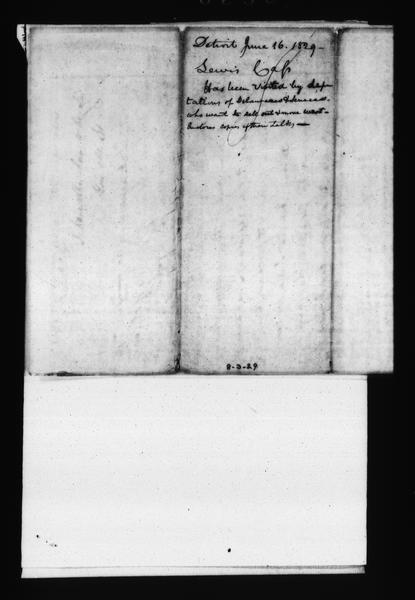 Detroit June 16. 1829.
Lewis Cass
Has been visited by depu-
tations of Delawares & Senecas.
who want to sell out & move west-
Encloses copies of their talks,—
8-3-29